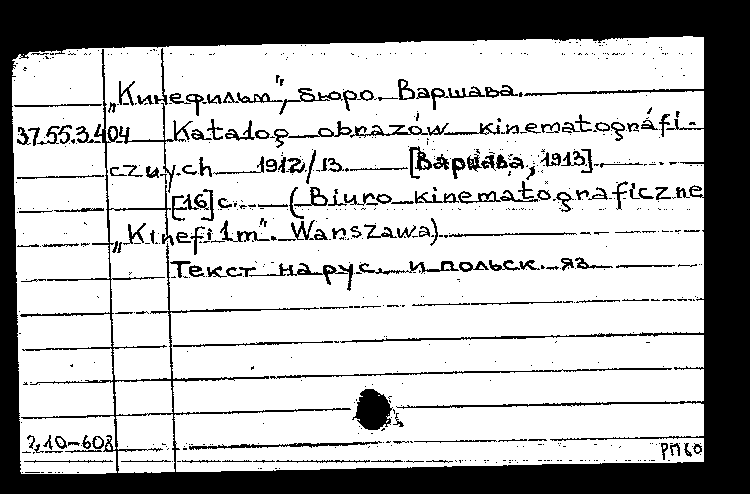 „Кинефильм", бюро. Варшава.
37.55.3.404 Katalog obrazów kinematográfi-
czuych 1912/13 [Варшава, 1913].
[16] с. (Biuro kinematograficzne
„Kinefilm". Warszawa)
Текст на рус. и польск. яз.
2,10-608
РП60